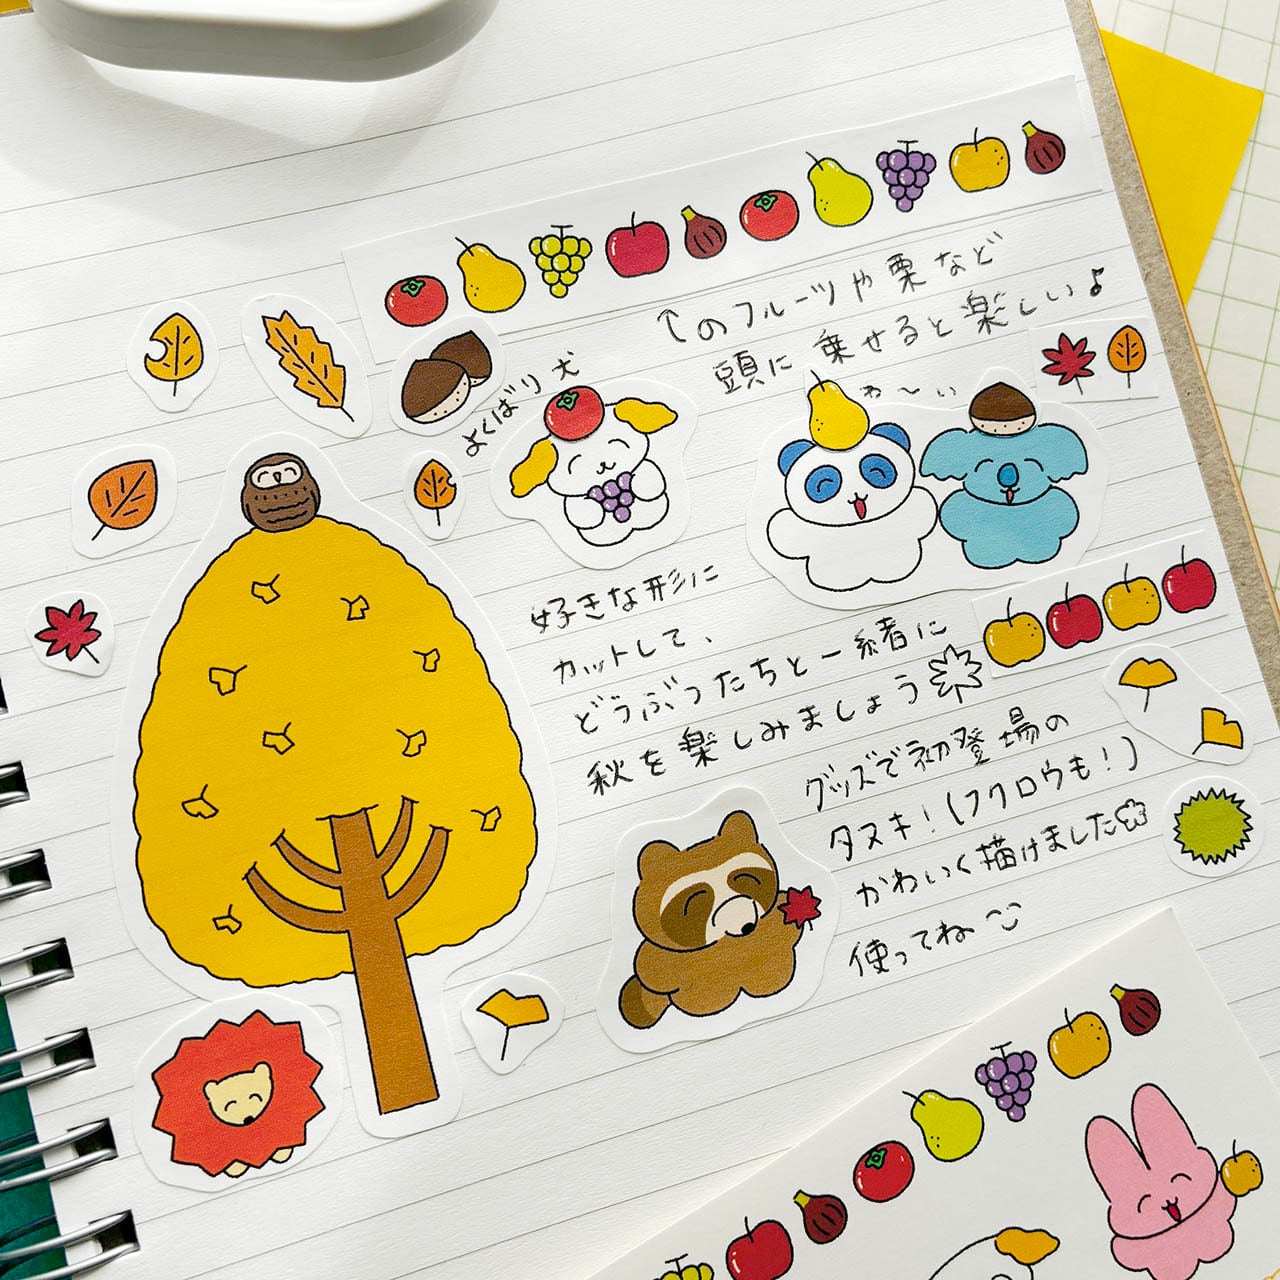 ↑のフルーツや栗など
頭に乗せると楽しい♪
よくばり犬
わ〜い
好きな形に
カットして、
どうぶつたちと一緒に
秋を楽しみましょう
グッズで初登場の
タヌキ!(フクロウも!)
かわいく描けました
使ってね